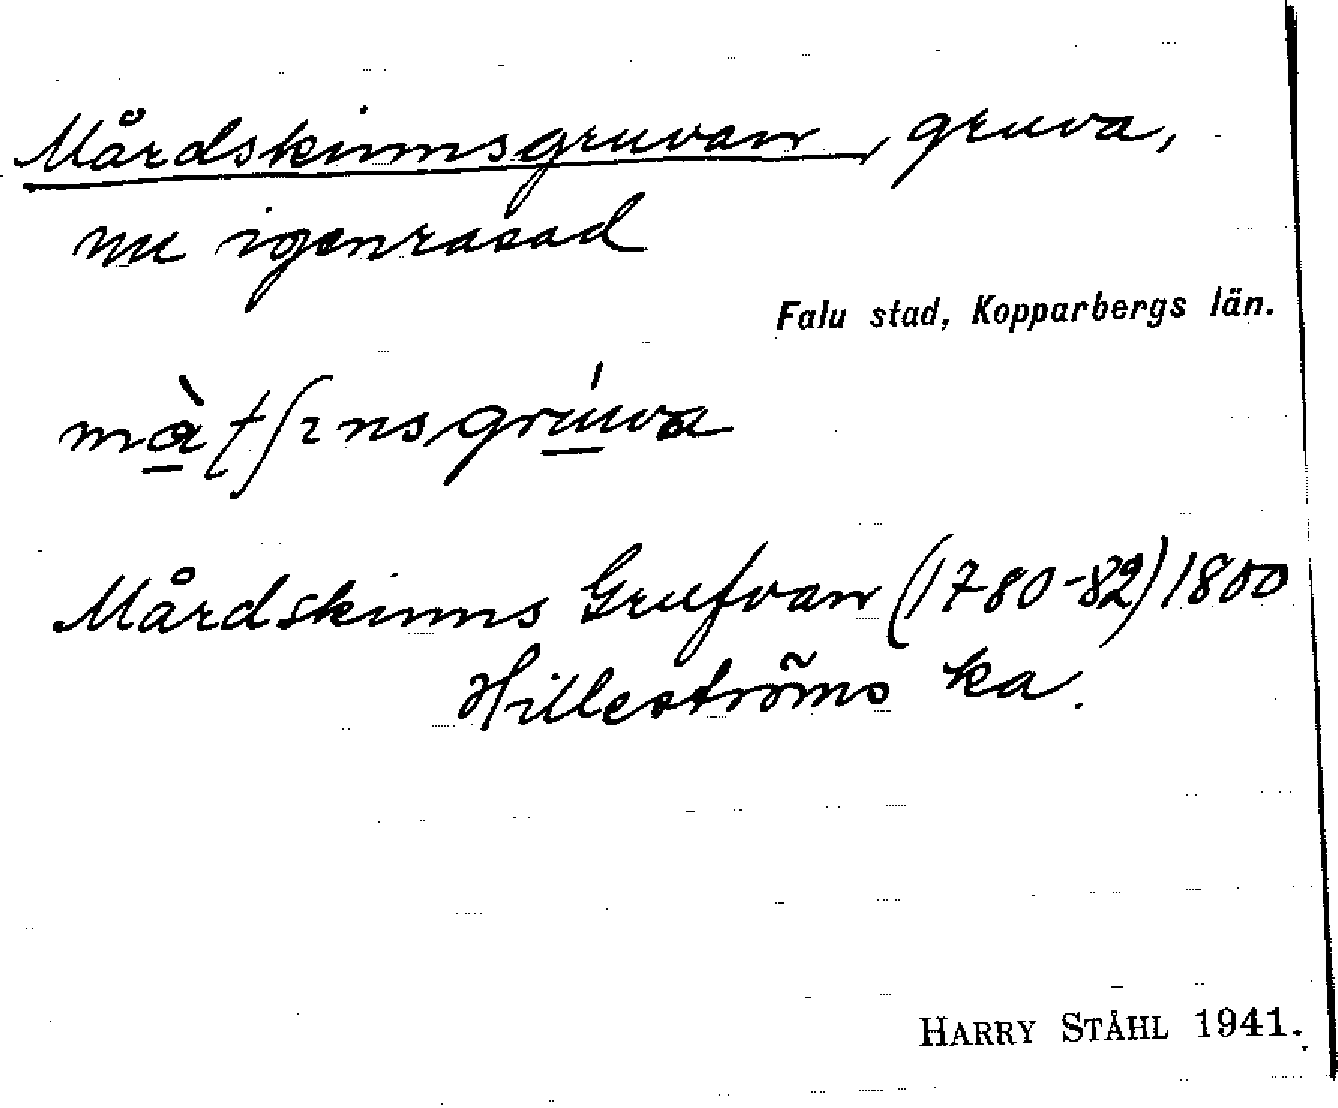 Mårdskinnsgruvan, gruva,
nu igenrasad
Falu stad, Kopparbergs län.
Mårdskinns Grufvan (1780-82) 1800
Hilleströms ka.
HARRY STÅHL 1941.